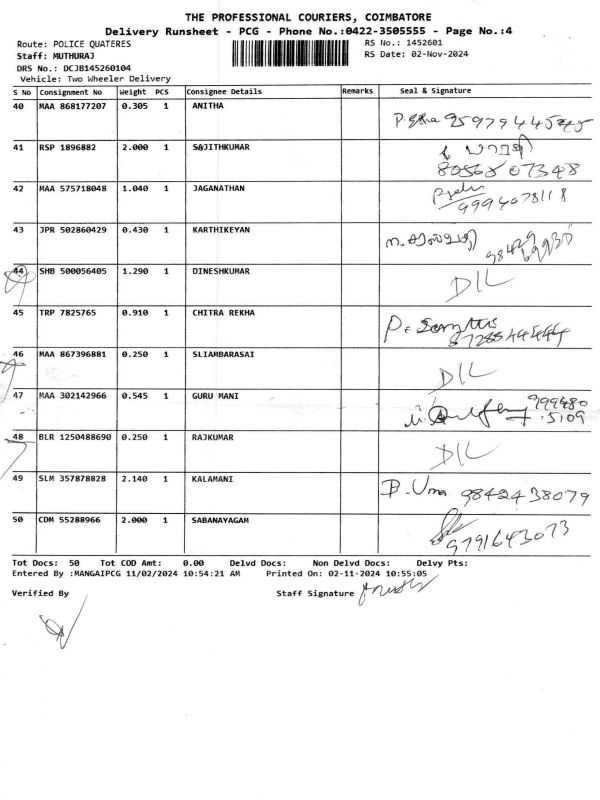 THE PROFESSIONAL COURIERS, COIMBATORE
Delivery Runsheet - PCG - Phone No.:0422-3505555 - Page No.:4
Route: POLICE QUATERES
RS No.: 1452601
Staff: MUTHURAJ
RS Date: 02-Nov-2024
DRS No.: DCJB145260104
Vehicle: Two Wheeler Delivery
S No Consignment No Weight PCS Consignee Details Remarks Seal & Signature
40 MAA 868177207 0.305 1 ANITHA
41 RSP 1896882 2.000 1 SAJITHKUMAR
80568 07348
42 MAA 575718048 1.040 1 JAGANATHAN
9994078118
43 JPR 502860429 0.430 1 KARTHIKEYAN
44 SHB 500056405 1.290 1 DINESHKUMAR D/L
45 TRP 7825765 0.910 1 CHITRA REKHA
46 MAA 867396881 0.250 1 SLIAMBARASAI D/L
47 MAA 302142966 0.545 1 GURU MANI 999480
5109
48 BLR 1250488690 0.250 1 RAJKUMAR D/L
49 SLM 357878828 2.140 1 KALAMANI P. Uma 9842438079
50 CDM 55288966 2.000 1 SABANAYAGAM
9791643073
Tot Docs: 50 Tot COD Amt: 0.00 Delvd Docs: Non Delvd Docs: Delvy Pts:
Entered By :MANGAIPCG 11/02/2024 10:54:21 AM Printed On: 02-11-2024 10:55:05
Verified By Staff Signature